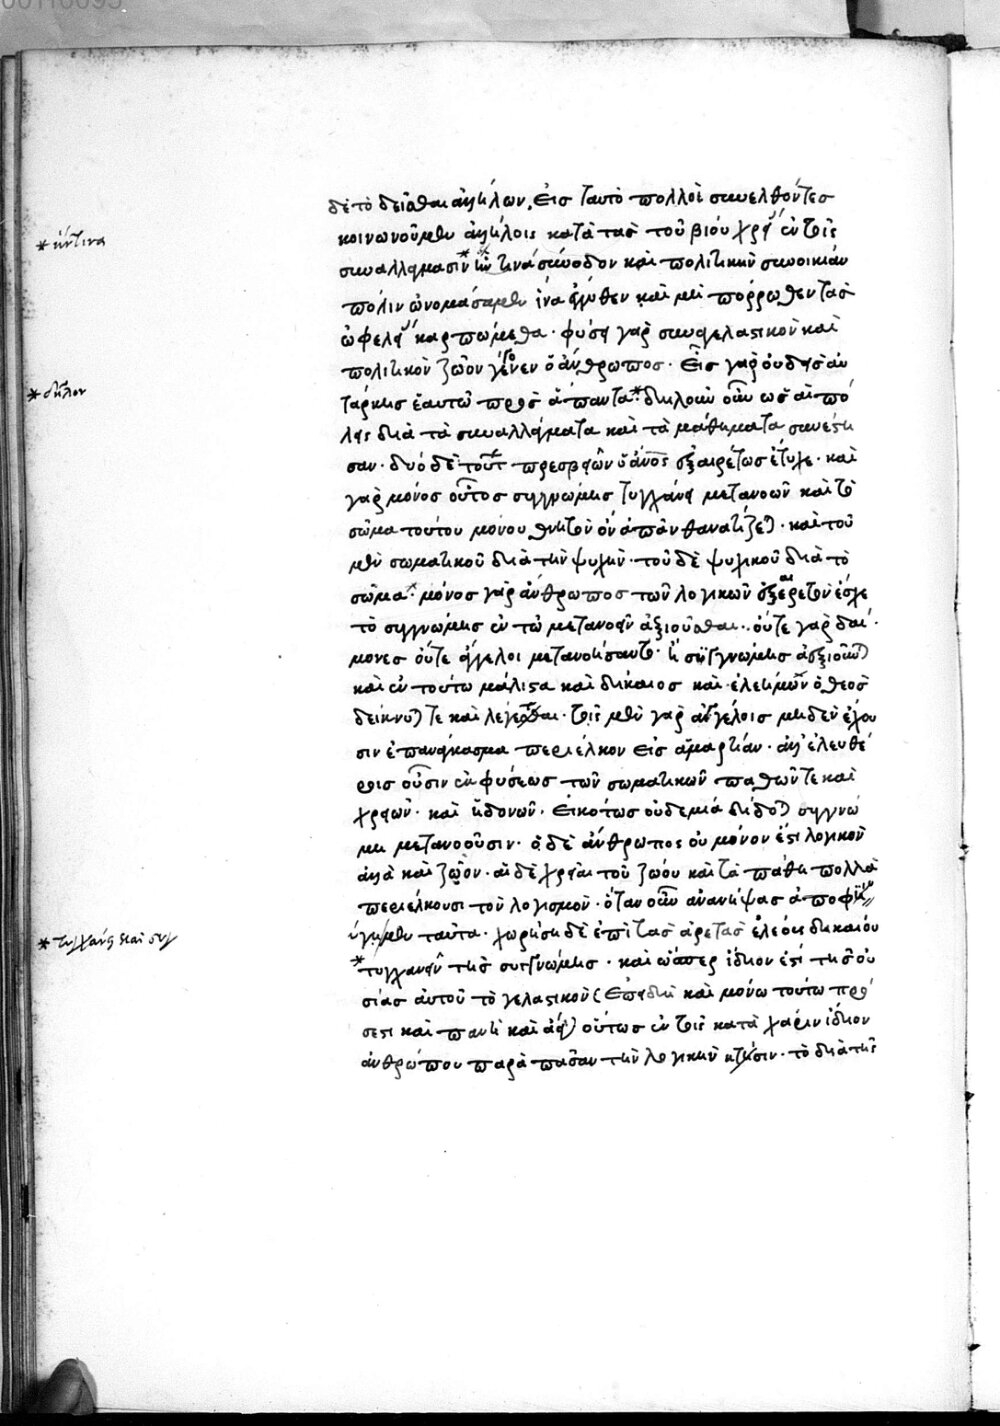 00110095
δὲ τὸ δεῖσθαι ἀλλήλων. Εἰς ταυτὸ πολλοὶ συνελθόντες
* ἥντινα
κοινωνοῦμεν ἀλλήλοις κατὰ τὰς τοῦ βίου χρείας ἐν τοῖς
συναλλάγμασιν * τινὰ σύνοδον καὶ πολιτικὴν συνοικίαν
πόλιν ὠνομάσαμεν ἵνα ἐγγύθεν καὶ μὴ πόρρωθεν τὰς
ὠφελείας καρπώμεθα· φύσει γὰρ συναγελαστικὸν καὶ
πολιτικὸν ζῶον γέγονεν ὁ ἄνθρωπος· Εἷς γὰρ οὐδεὶς αὐ
* δῆλον
τάρκης ἑαυτῶ πρὸς ἅπαντα *· δηλοῦν οὖν ὡς αἱ πό
λεις διὰ τὰ συναλλάγματα καὶ τὰ μαθήματα συνέστη
σαν· δύο δὲ τούτ πρεσβειῶν ὁ ἄνος ἐξαιρέτως ἔτυχε· καὶ
γὰρ μόνος οὗτος συγγνώμης τυγχάνει μετανοῶν καὶ τὸ
σῶμα τούτου μόνου θνητὸν ὂν ἀπαθανατίζεται· καὶ τοῦ
μὲν σωματικοῦ διὰ τὴν ψυχὴν· τοῦ δὲ ψυχικοῦ διὰ τὸ
σῶμα· μόνος γὰρ ἄνθρωπος τῶν λογικῶν ἐξαίρετον ἔσχε
τὸ συγγνώμης ἐν τῶ μετανοεῖν ἀξιοῦσθαι· οὔτε γὰρ δαί
μονες οὔτε ἄγγελοι μετανοήσαντες ἢ συγγνώμης ἀξιοῦνται
καὶ ἐν τούτω μάλιστα καὶ δίκαιος καὶ ἐλεήμων ὁ θεὸς
δείκνυταί τε καὶ λέγεσθαι· τοῖς μὲν γὰρ ἀγγέλοις μηδὲν ἔχου
σιν ἐπανάγκασμα περιέλκον εἰς ἁμαρτίαν· ἀλλ' ἐλευθέ
ροις οὖσιν ἐκ φύσεως τῶν σωματικῶν παθῶν τε καὶ
χρειῶν· καὶ ἡδονῶν· Εἰκότως οὐδεμία δίδοται συγγνώ
μη μετανοοῦσιν· ὁ δὲ ἄνθρωπος οὐ μόνον ἐστὶ λογικὸν
ἀλλὰ καὶ ζῶον· αἱ δὲ χρεῖαι τοῦ ζώου καὶ τὰ πάθη πολλὰ
περιέλκουσι τὸν λογισμὸν· ὅταν οὖν ἀνανήψας ἀποφύ
* τυγχάνει καὶ συγ
γῃ μὲν ταῦτα· χωρήσῃ δὲ ἐπὶ τὰς ἀρετὰς ἐλέους δικαίου
* τυγχάνειν τῆς συγγνώμης· καὶ ὥσπερ ἴδιον ἐστὶ τῆς οὐ
σίας αὐτοῦ τὸ γελαστικὸν (Επειδὴ καὶ μόνω τούτω πρό
σεστι καὶ παντὶ καὶ ἀεὶ) οὕτως ἐν τοῖς κατὰ χάριν ἴδιον
ἀνθρώπου παρὰ πᾶσαν τὴν λογικὴν κτίσιν· τὸ διὰ τῆς